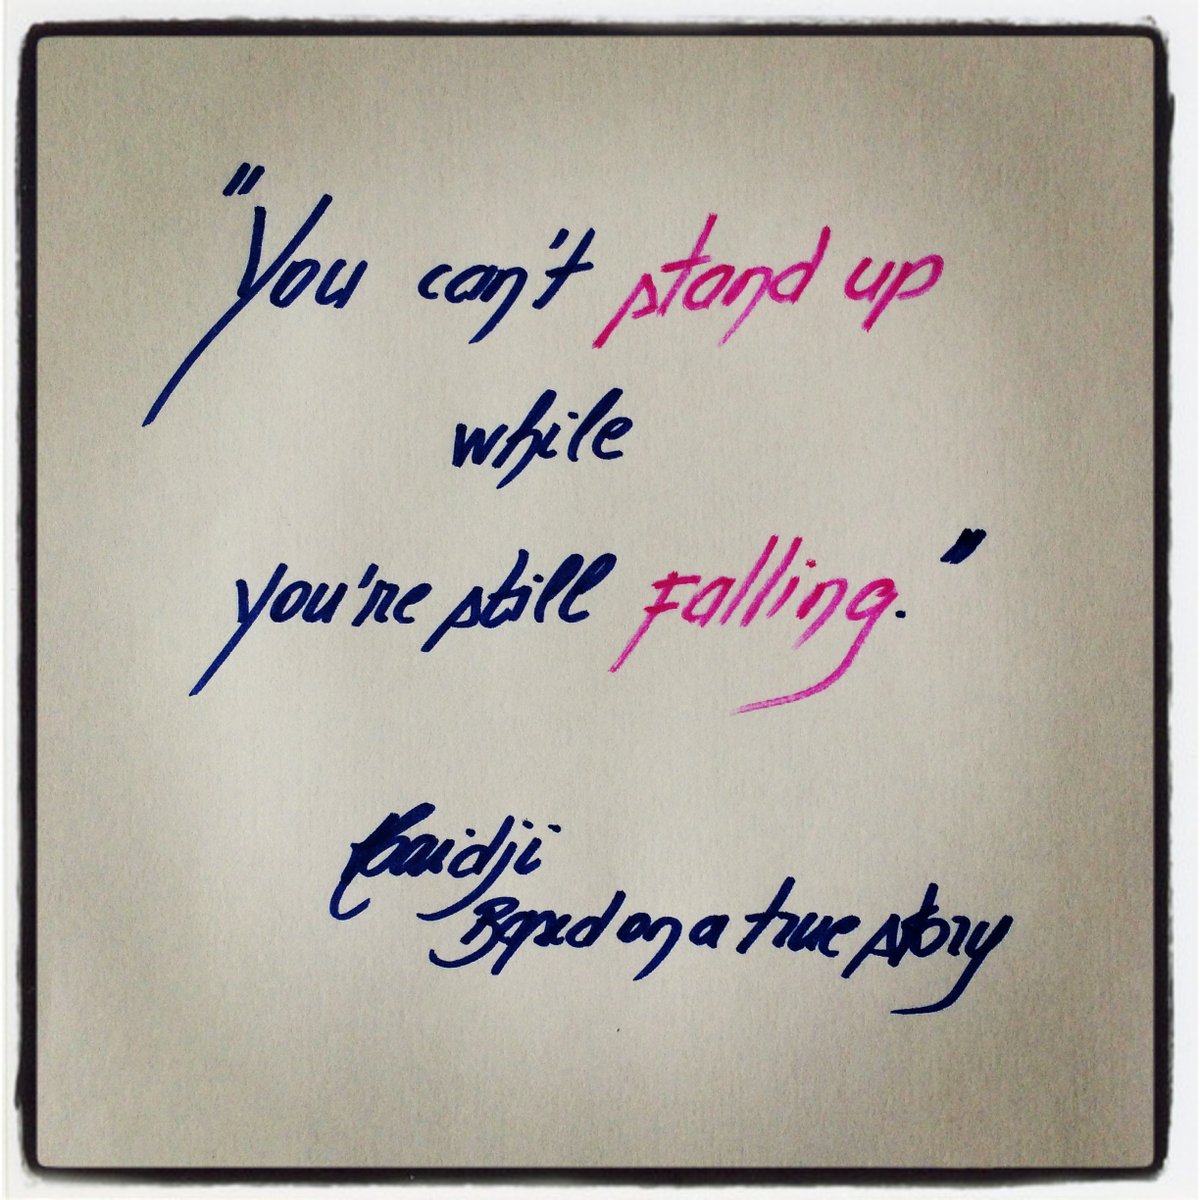 "You can't stand up
while
you're still Falling."
Baidji
Based on a true story